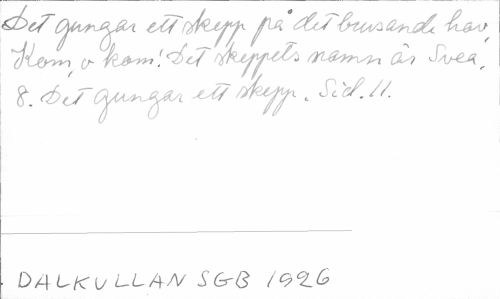 Det gungar ett skepp på det brusande hav,
Kom, o kom! Det skeppets namn är Svea,
8. Det gungar ett skepp. Sid. 11.
DALKULLAN SGB 1926